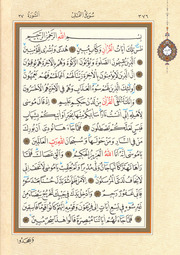 ٣٧٦ سُورَةُ النَّمل السُّورة ٢٧
بسم الله الرحمن الرحيم
طس تلك آيات القرآن وكتاب مبين هدى وبشرى للمؤمنين
الذين يقيمون الصلاة ويؤتون الزكاة وهم بالآخرة هم يوقنون
إن الذين لا يؤمنون بالآخرة زينا لهم أعمالهم فهم يعمهون
أولئك الذين لهم سوء العذاب وهم في الآخرة هم الأخسرون
وإنك لتلقى القرآن من لدن حكيم عليم إذ قال موسى
لأهله إني آنست نارا سآتيكم منها بخبر أو آتيكم بشهاب
قبس لعلكم تصطلون فلما جاءها نودي أن بورك
من في النار ومن حولها وسبحان الله رب العالمين يا
موسى إنه أنا الله العزيز الحكيم وألق عصاك فلما
رآها تهتز كأنها جان ولى مدبرا ولم يعقب يا موسى لا تخف
إني لا يخاف لدي المرسلون إلا من ظلم ثم بدل حسنا بعد سوء
فإني غفور رحيم وأدخل يدك في جيبك تخرج بيضاء من
غير سوء في تسع آيات إلى فرعون وقومه إنهم كانوا قوما
فاسقين فلما جاءتهم آياتنا مبصرة قالوا هذا سحر مبين
وجحدوا